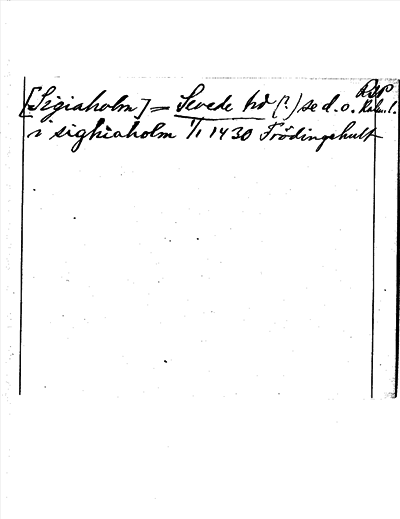 [Sigiaholm] = Sevede hd (?) se d.o. Kalm.l.
i sighiaholm 1/1 1430 Frödingehult